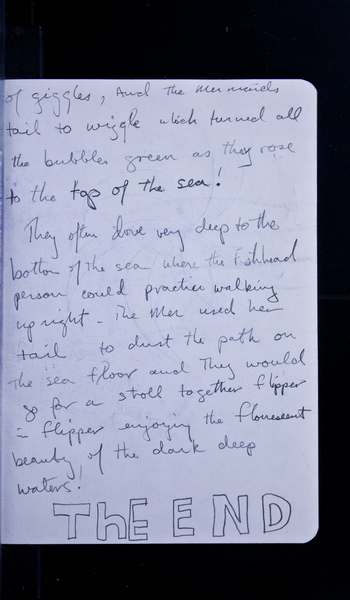 of giggles, And the Mermaids
tail to wiggle which turned all
the bubbles green as they rose
to the top of the sea!
They often dove very deep to the
bottom of the sea where the Fishhead
person could practice walking
upright - The Mer used her
tail to dust the path on
the sea floor and They would
go for a stroll together flipper
in flipper enjoying the flourescent
beauty of the dark deep
waters!
ThE END